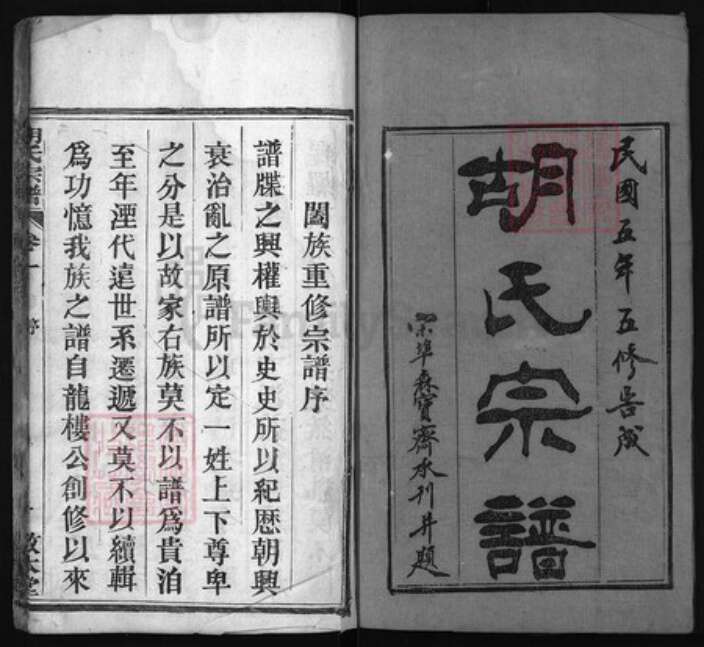 民國五年五修告成
胡氏宗譜
宗埠森寶齋承刊并題
闔族重修宗譜序
譜牒之興權輿於史史所以紀歷朝興
衰治亂之原譜所以定一姓上下尊卑
之分是以故家右族莫不以譜爲貴洎
至年湮代遠世系遷遞又莫不以續輯
爲功憶我族之譜自龍樓公創修以來
胡氏宗譜 卷一 序 一 敦本堂